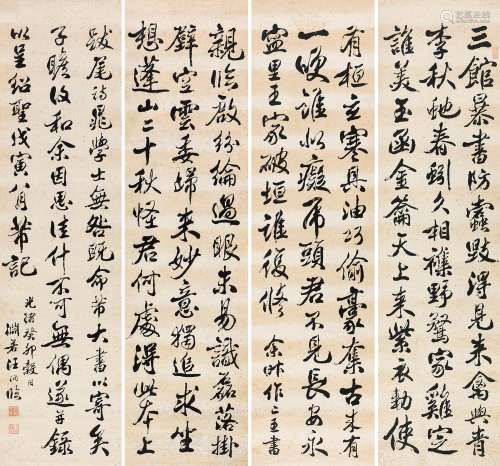 三館暴書防蠹毀得見來禽與青
李秋虵春蚓久相襍野鶩家雞定
誰美玉函金籥天上來紫衣勅使
有桓玄寒具油巧偷豪奪古來有
一咲誰似癡虎頭君不見長安永
寧里王家破垣誰復修 余昨作二王書
親臨啟紛綸過眼未易識磊落掛
壁空雲委歸來妙意獨追求坐
想蓬山二十秋怪君何處得此本上
跋尾詩晁學士無咎既命芾大書以寄矣
子瞻後和余因思佳什不可無偶遂并錄
以呈紹聖戊寅八月芾記
光緒癸卯穀日
淵若汪洵臨